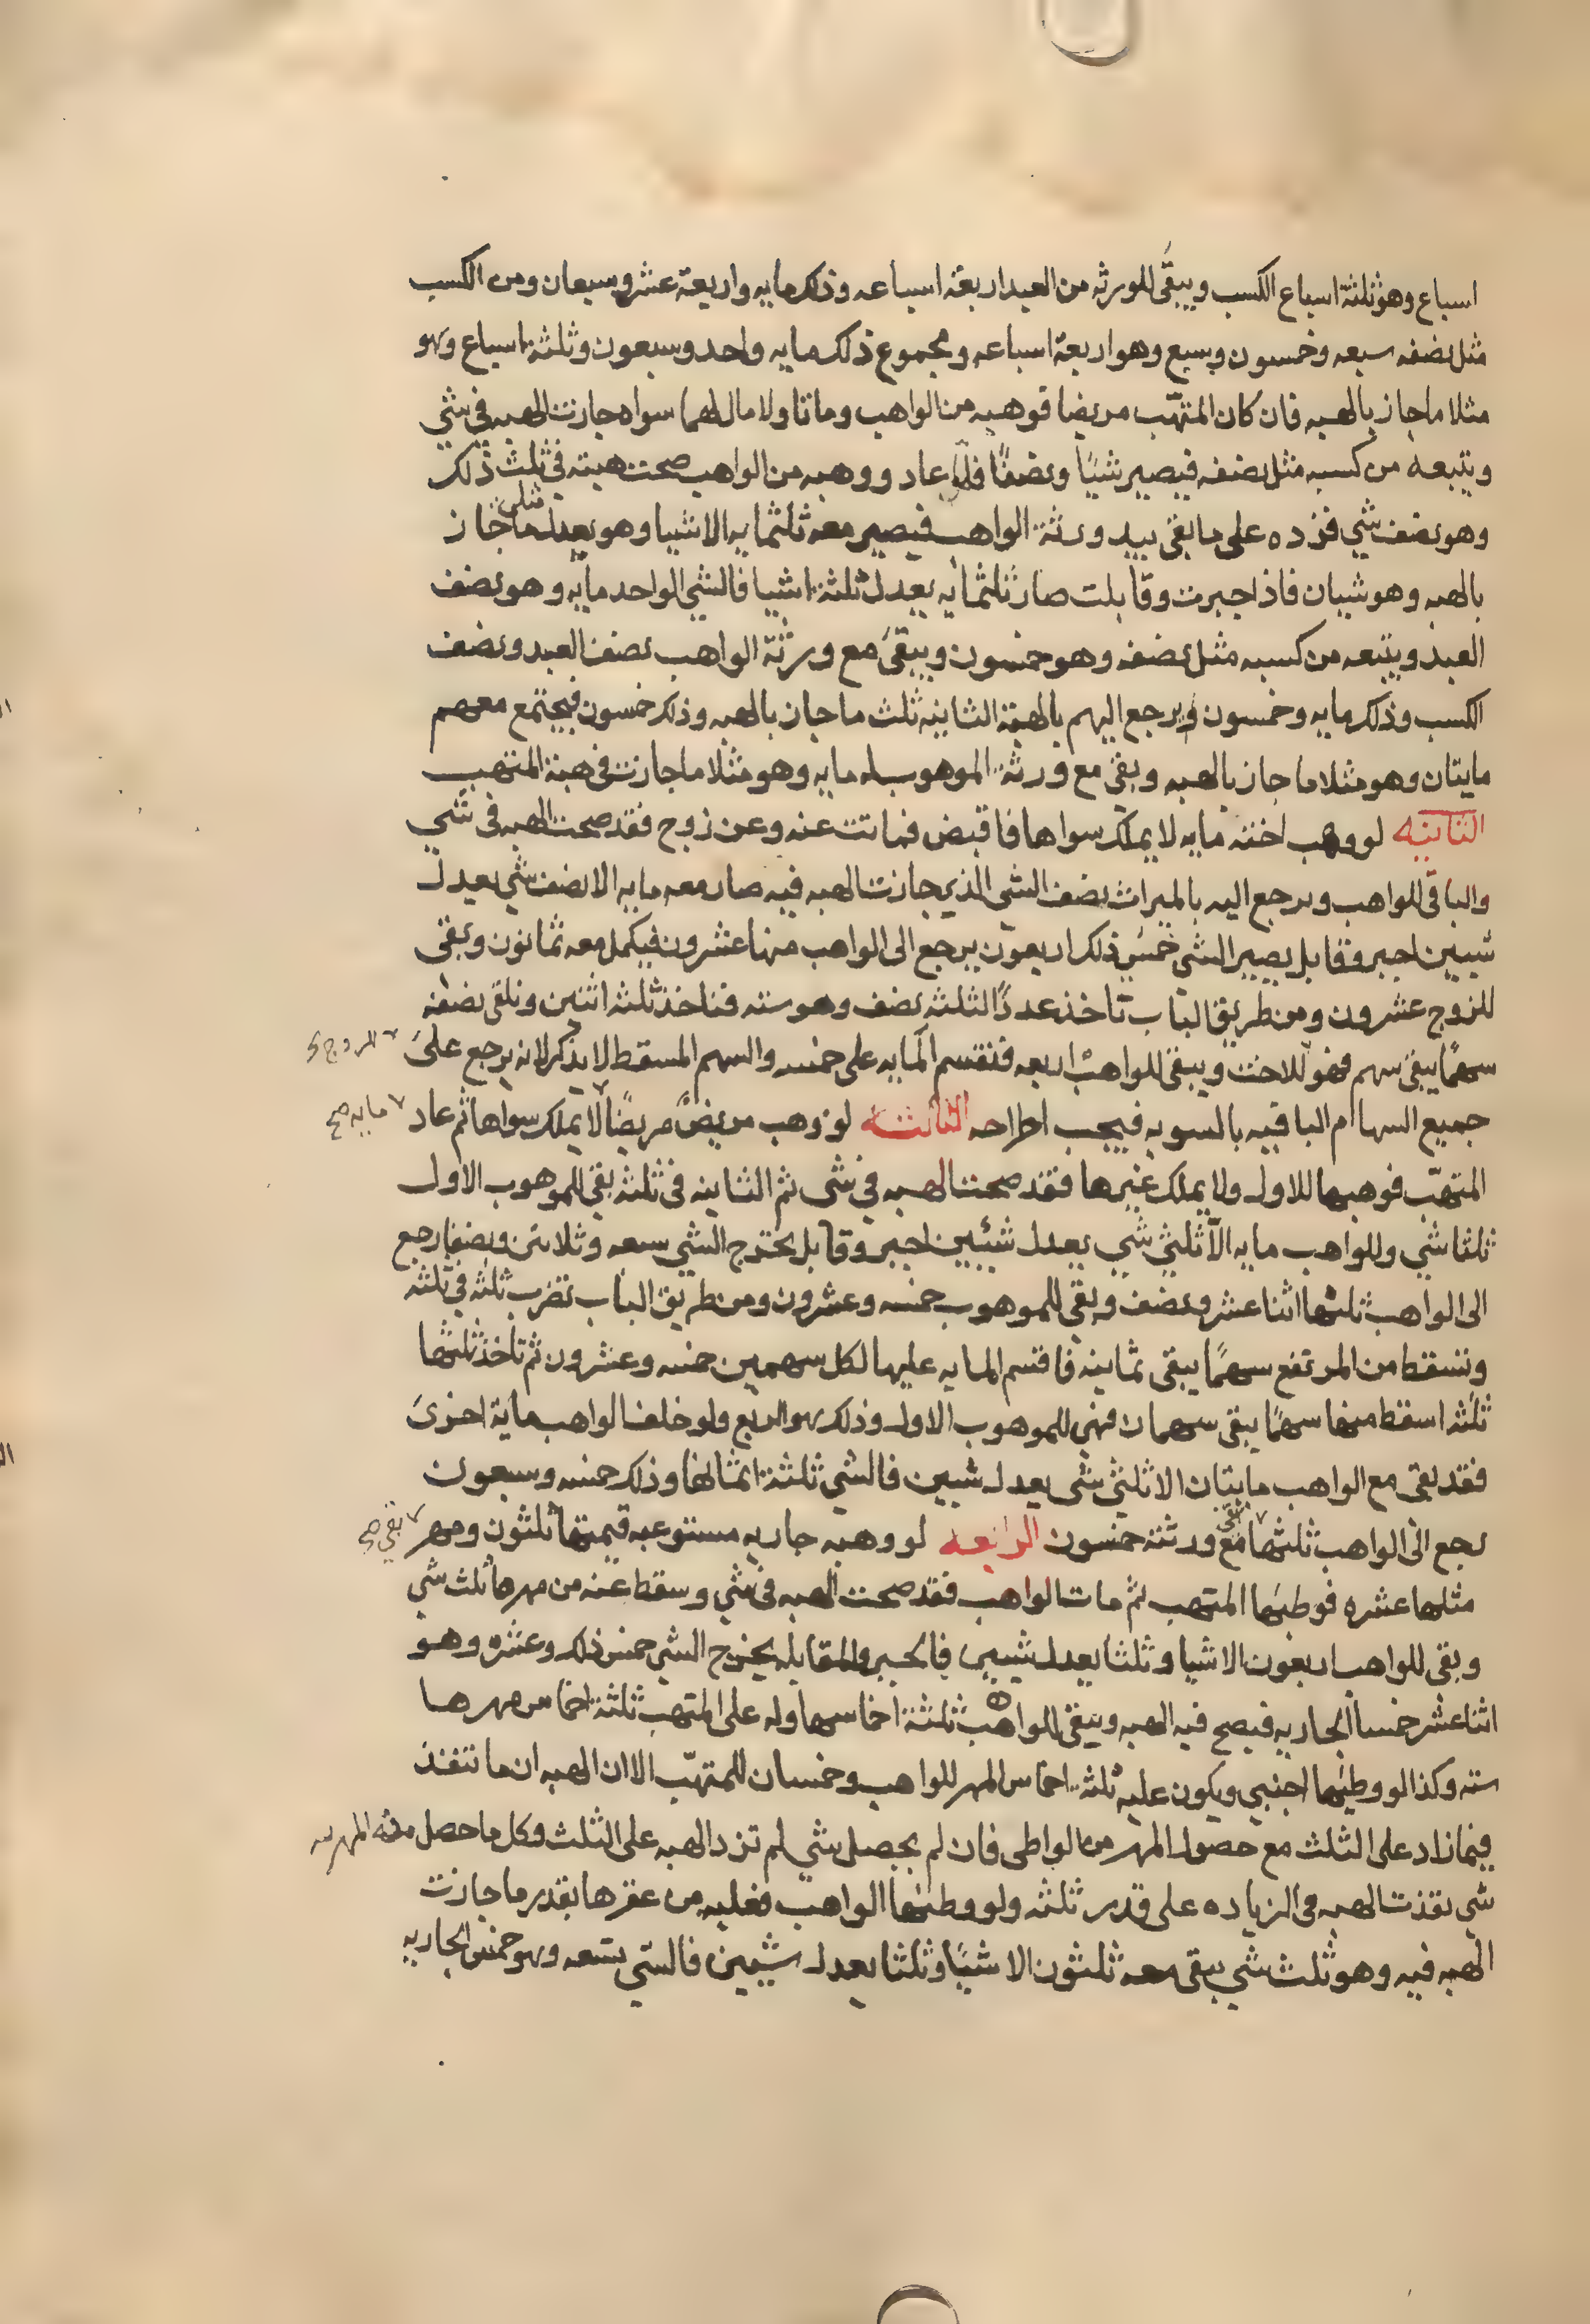 اسباع وهو ثلثة اسباع الكسب ويبقى للورثه من العبد اربعة اسباعه وذلك مايه واربعة عشر وسبعان ومن الكسب
مثل نصفه سبعه وخمسون وسبع وهو اربعة اسباعه ومجموع ذلك مايه واحد وسبعون وثلثة اسباع وهو
مثلا ما جاز بالهبه فان كان المتهب مريضا فوهبه من الواهب وماتا ولا مال لهما سواه جازت الهبه في شي
ويتبعه من كسبه مثل نصفه فيصير شيًا ونصفًا فلما عاد ووهبه من الواهب صحت هبته في ثلث ذلك
وهو نصف شي فزده على ما بقى بيد ورثة الواهب فيصير معه ثلثمايه الا شيا وهو يعدل مثلى ما جاز
بالهبه وهو شيان فاذا جبرت وقابلت صار ثلثمايه يعدل ثلثة اشيا فالشي الواحد مايه وهو نصف
العبد ويتبعه من كسبه مثل نصفه وهو خمسون ويبقى مع ورثة الواهب نصف العبد ونصف
الكسب وذلك مايه وخمسون ويرجع اليهم بالهبة الثانيه ثلث ما جاز بالهبه وذلك خمسون فيجتمع معهم
مايتان وهو مثلا ما جاز بالهبه وبقى مع ورثة الموهوب له مايه وهو مثلا ما جازت فى هبة المتهب
الثانيه لو وهب اخته مايه لا يملك سواها فاقبض فماتت عنه وعن زوج فقد صحت الهبه فى شي
والباقى للواهب ويرجع اليه بالميراث نصف الشي الذي جازت الهبه فيه صار معه مايه الا نصف شي يعدل
شيين اجبر وقابل يصير الشي خمسي ذلك اربعون يرجع الى الواهب منها عشرون فيكمل معه ثمانون وبقى
للزوج عشرون ومن طريق الباب تاخذ عددًا لثلثه نصف وهو سته فتاخذ ثلثه اثنين وتلقى نصفه
سهمًا يبقى سهم فهو للاخت ويبقى للواهب اربعه فتقسم المايه على خمسه والسهم المسقط لا يذكر لانه يرجع على
جميع السهام الباقيه بالسويه فيجب اطراحه الثالثه لو وهب مريض مريضًا لا يملك سواها ثم عاد مايه صح
المتهب فوهبها للاول ولا يملك غيرها فقد صحت الهبه في شي ثم الثانيه فى ثلثه بقى للموهوب الاول
ثلثا شي وللواهب مايه الا ثلثي شي يعدل شيئين اجبر وقابل يخرج الشي سبعه وثلاثين ونصفا رجع
الى الواهب ثلثها اثنا عشر ونصف وبقى للموهوب خمسه وعشرون ومن طريق الباب تضرب ثلثه فى ثلثه
وتسقط من المرتفع سهمًا يبقى ثمانيه فاقسم المايه عليها لكل سهمين خمسه وعشرون ثم تاخذ ثلثها
ثلثه اسقط منها سهمًا يبقى سهمان فهى للموهوب الاول وذلك هو الربع ولو خلف الواهب ماية اخرى
فقد بقى مع الواهب مايتان الا ثلثى شى يعدل شيين فالشي ثلثة اثمانها وذلك خمسه وسبعون
رجع الى الواهب ثلثها بقى مع ورثته خمسون الرابعه لو وهبه جاريه مستوعبه قيمتها ثلثون ومهر
مثلها عشره فوطيها المتهب ثم مات الواهب فقد صحت الهبه فى شي وسقط عنه من مهرها ثلث شي
وبقى للواهب اربعون الا شيا وثلثا يعدل شيين فالجبر والمقابله يخرج الشي خمس ذلك وعشره وهو
اثنا عشر خمسا الجاريه فيصح فيه الهبه ويبقى للواهب ثلثة اخماسها وله على المتهب ثلثة اخماس مهرها
سته وكذا لو وطيها اجنبي ويكون عليه ثلثة اخماس المهر للواهب وخمسان للمتهب الا ان الهبه ان ما تنفذ
فيما زاد على الثلث مع حصول المهر من الواطى فان لم يحصل شي لم تزد الهبه على الثلث وكل ما حصل منه المهر
شي نفذت الهبه فى الزياده على قدر ثلثه ولو وطيها الواهب فعليه من عقرها بقدر ما جازت
الهبه فيه وهو ثلث شي يبقى معه ثلثون الا شيًا وثلثا يعدل شيين فالشي تسعه وهو خمس الجاريه